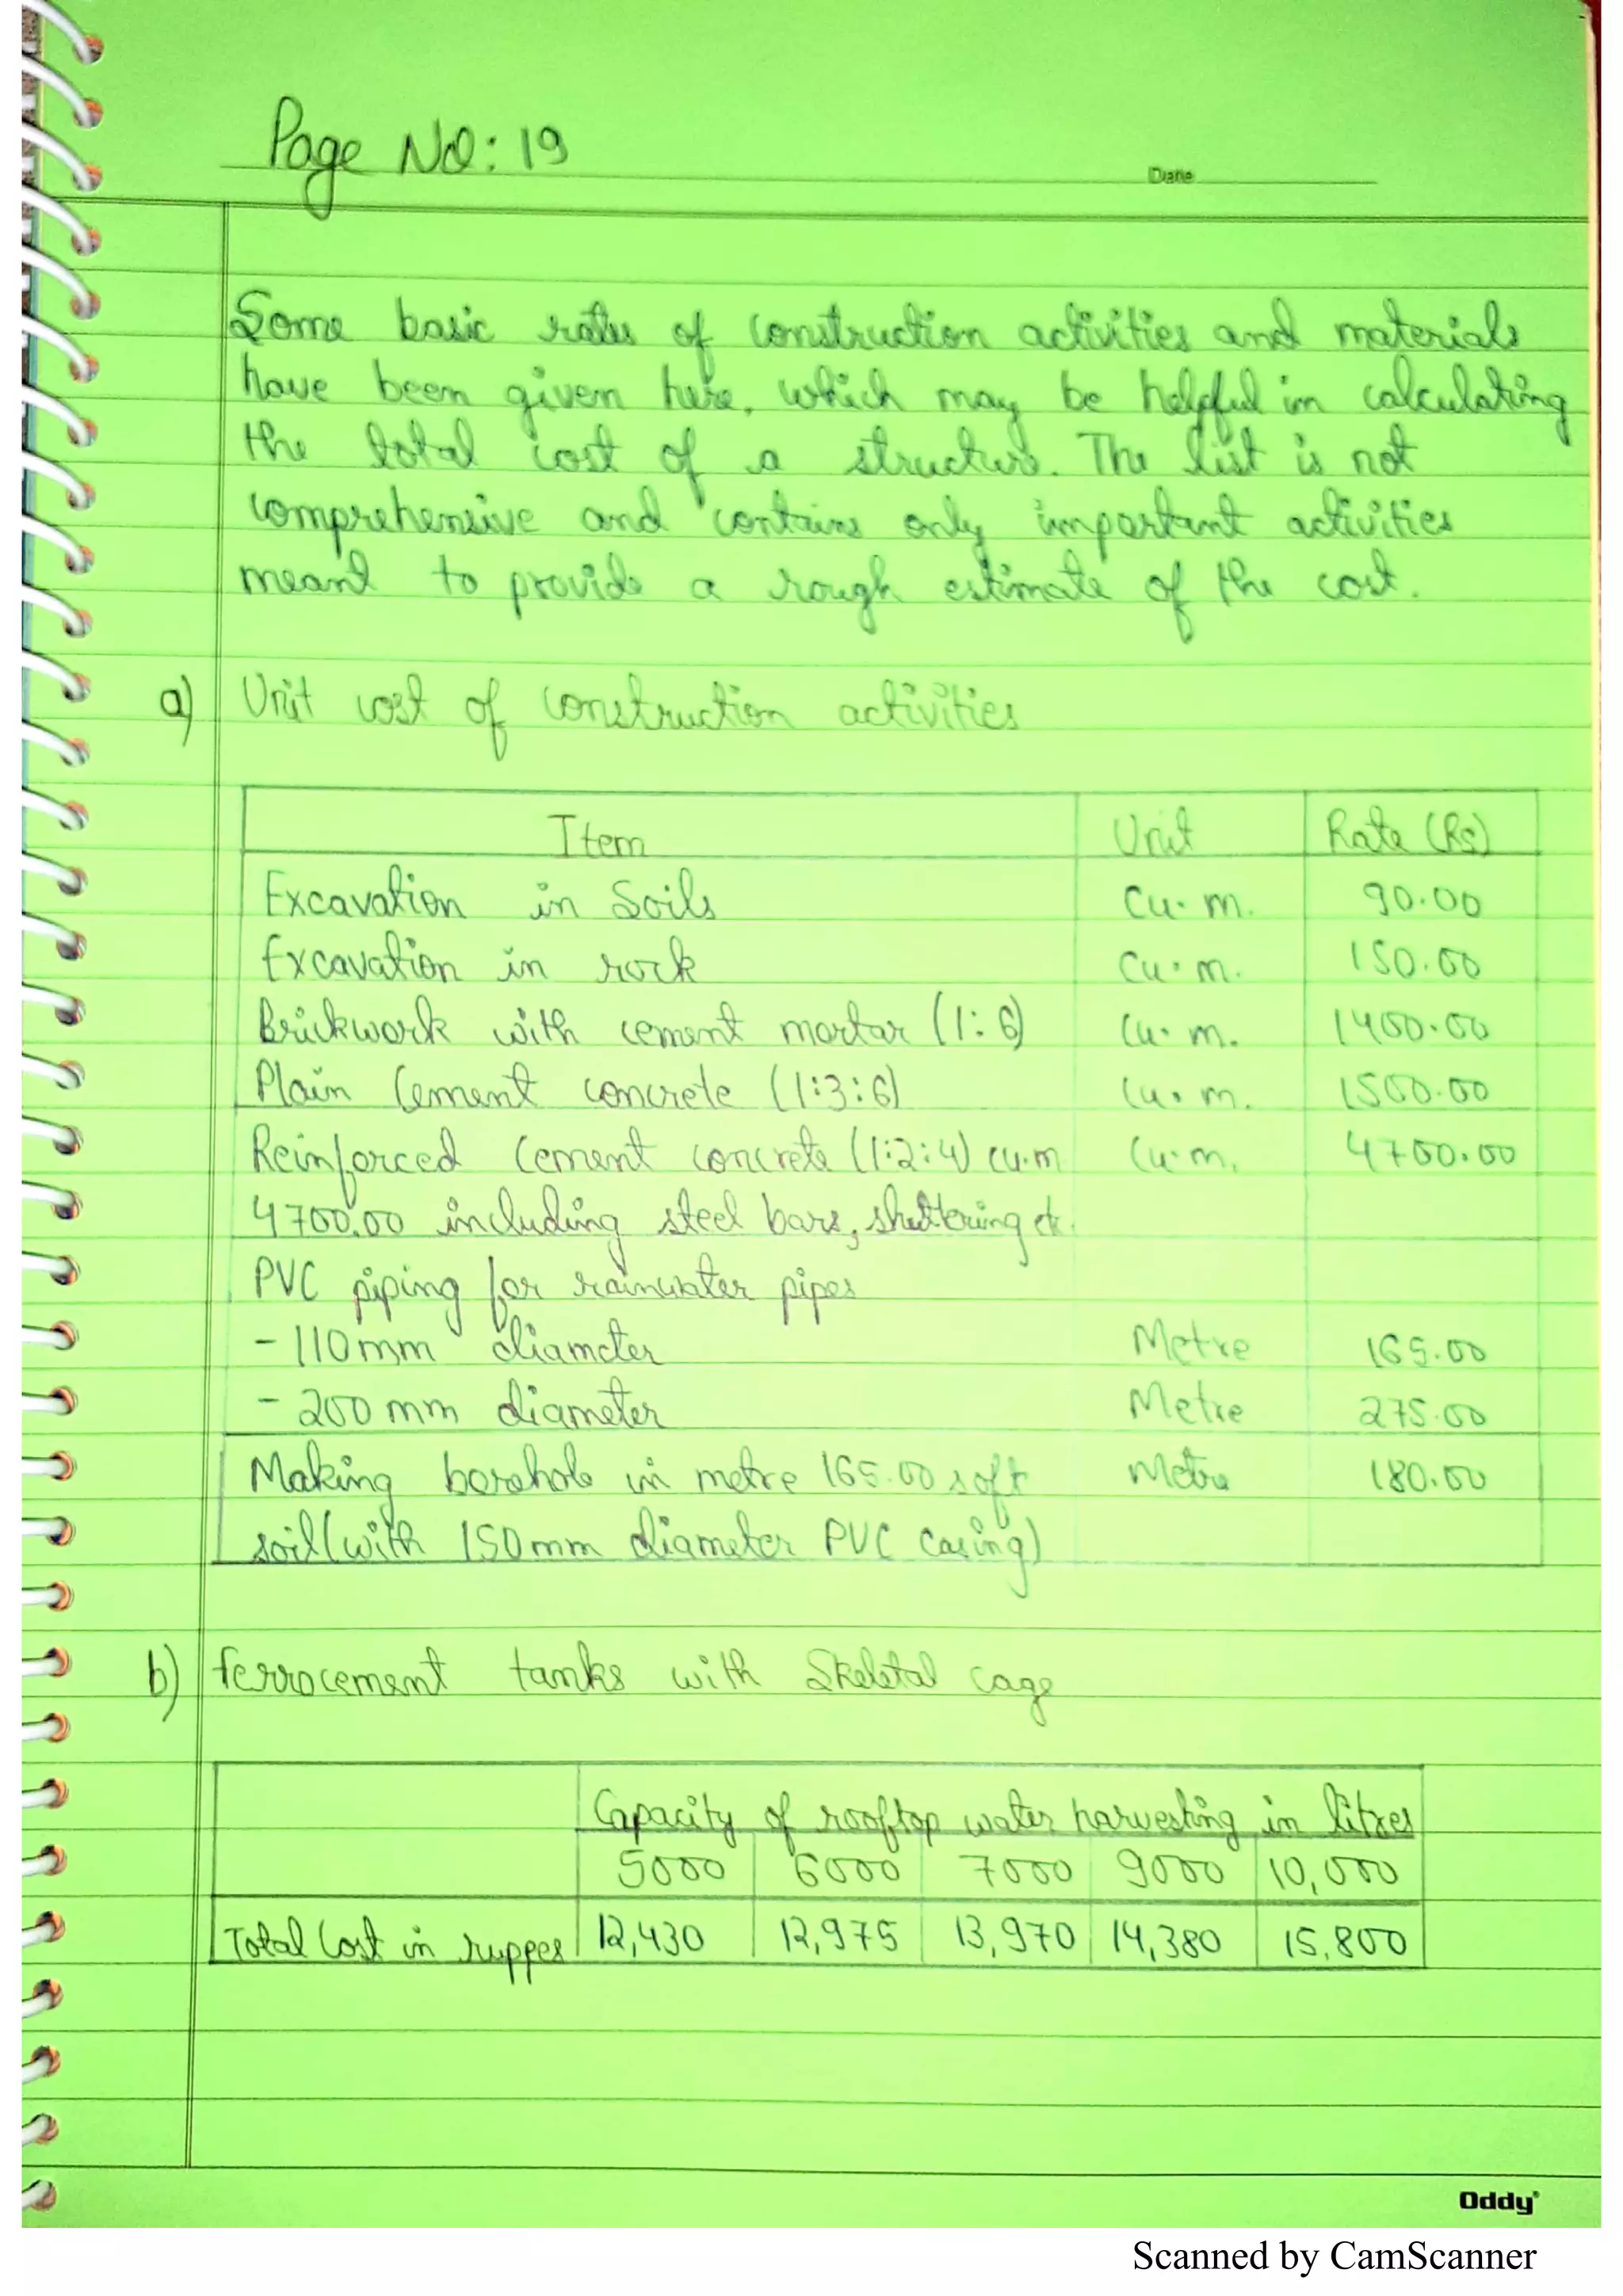 Page No: 19
Date
Some basic rates of construction activities and materials
have been given here, which may be helpful in calculating
the total cost of a structure. The list is not
comprehensive and contains only important activities
meant to provide a rough estimate of the cost.
a) Unit cost of construction activities
Item Unit Rate (Rs)
Excavation in Soils Cu. m. 90.00
Excavation in rock Cu. m. 150.00
Brickwork with cement mortar (1:6) Cu. m. 1400.00
Plain Cement concrete (1:3:6) Cu. m. 1500.00
Reinforced Cement concrete (1:2:4) cu.m Cu. m. 4700.00
4700.00 including steel bars, shuttering etc.
PVC piping for rainwater pipes
- 110mm diameter Metre 165.00
- 200 mm diameter Metre 275.00
Making borehole in metre 165.00 soft Metre 180.00
soil (with 150mm diameter PVC casing)
b) ferrocement tanks with Skeletal cage
Capacity of rooftop water harvesting in litres
5000 6000 7000 9000 10,000
Total Cost in ruppes 12,430 12,975 13,970 14,380 15,800
Oddy
Scanned by CamScanner